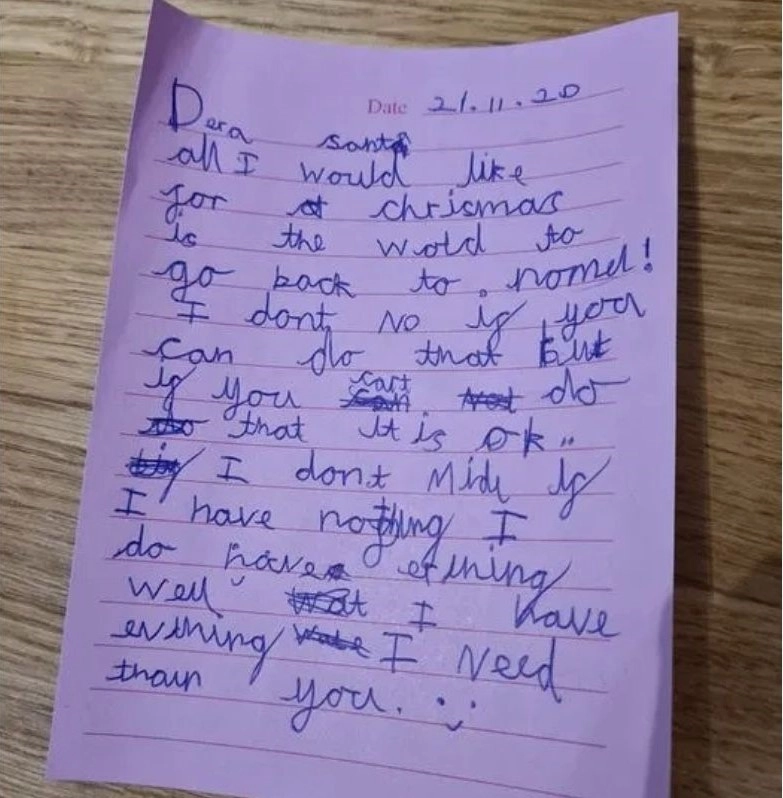 Date 21.11.20
Dera santa
all I would like
for chrismas
is the wold to
go back to nomel!
I dont no if you
can do that but
if you cart do
that it is ok..
I dont Mide if
I have nothing I
do have ething
well I have
evthing I Need
than you.